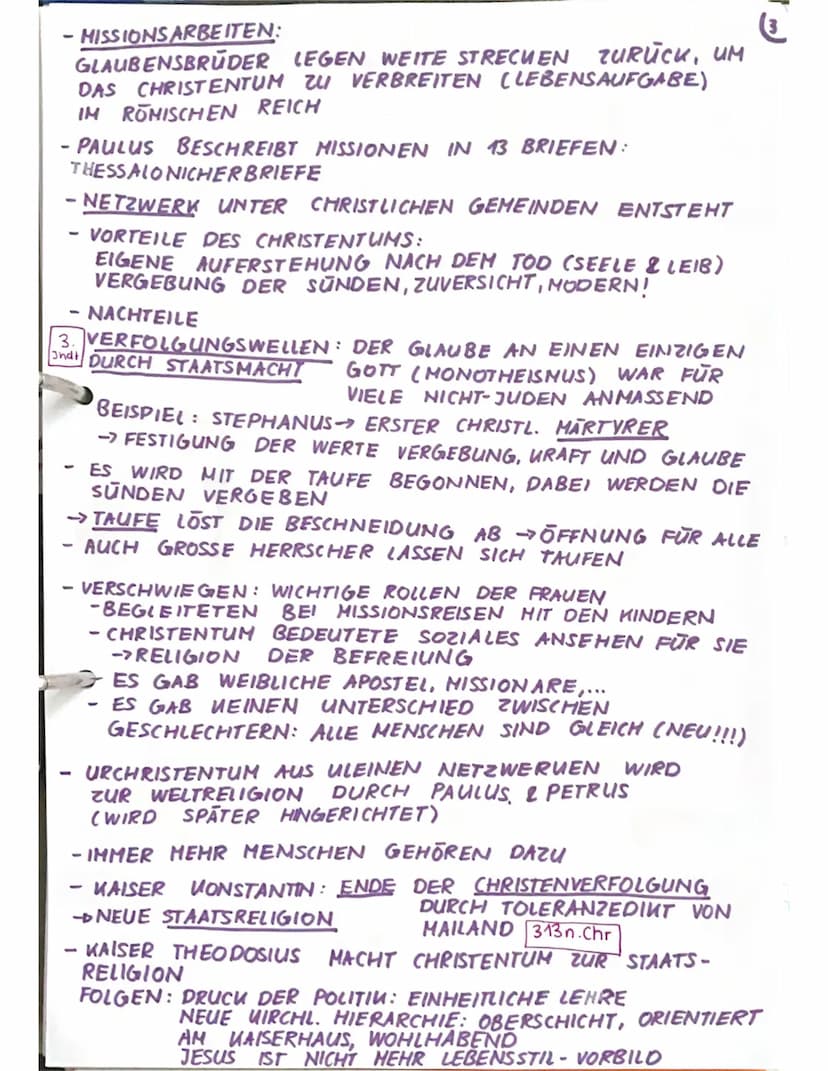 3
- MISSIONSARBEITEN:
GLAUBENSBRÜDER LEGEN WEITE STRECKEN ZURÜCK, UM
DAS CHRISTENTUM ZU VERBREITEN (LEBENSAUFGABE)
IM RÖMISCHEN REICH
- PAULUS BESCHREIBT MISSIONEN IN 13 BRIEFEN:
THESSALONICHERBRIEFE
- NETZWERK UNTER CHRISTLICHEN GEMEINDEN ENTSTEHT
- VORTEILE DES CHRISTENTUMS:
EIGENE AUFERSTEHUNG NACH DEM TOD (SEELE & LEIB)
VERGEBUNG DER SÜNDEN, ZUVERSICHT, MODERN!
- NACHTEILE
3. VERFOLGUNGSWELLEN: DER GLAUBE AN EINEN EINZIGEN
Jhdt DURCH STAATSMACHT GOTT (MONOTHEISMUS) WAR FÜR
VIELE NICHT-JUDEN ANMASSEND
BEISPIEL: STEPHANUS → ERSTER CHRISTL. MÄRTYRER
→ FESTIGUNG DER WERTE VERGEBUNG, KRAFT UND GLAUBE
- ES WIRD MIT DER TAUFE BEGONNEN, DABEI WERDEN DIE
SÜNDEN VERGEBEN
→ TAUFE LÖST DIE BESCHNEIDUNG AB → ÖFFNUNG FÜR ALLE
- AUCH GROSSE HERRSCHER LASSEN SICH TAUFEN
- VERSCHWIEGEN: WICHTIGE ROLLEN DER FRAUEN
- BEGLEITETEN BEI MISSIONSREISEN MIT DEN KINDERN
- CHRISTENTUM BEDEUTETE SOZIALES ANSEHEN FÜR SIE
→ RELIGION DER BEFREIUNG
- ES GAB WEIBLICHE APOSTEL, MISSIONARE,...
- ES GAB KEINEN UNTERSCHIED ZWISCHEN
GESCHLECHTERN: ALLE MENSCHEN SIND GLEICH (NEU!!!)
- URCHRISTENTUM AUS KLEINEN NETZWERKEN WIRD
ZUR WELTRELIGION DURCH PAULUS & PETRUS
(WIRD SPÄTER HINGERICHTET)
- IMMER MEHR MENSCHEN GEHÖREN DAZU
- KAISER KONSTANTIN: ENDE DER CHRISTENVERFOLGUNG
→ NEUE STAATSRELIGION DURCH TOLERANZEDIKT VON
MAILAND 313 n. Chr
- KAISER THEODOSIUS MACHT CHRISTENTUM ZUR STAATS-
RELIGION
FOLGEN: DRUCK DER POLITIK: EINHEITLICHE LEHRE
NEUE KIRCHL. HIERARCHIE: OBERSCHICHT, ORIENTIERT
AM KAISERHAUS, WOHLHABEND
JESUS IST NICHT MEHR LEBENSSTIL-VORBILD